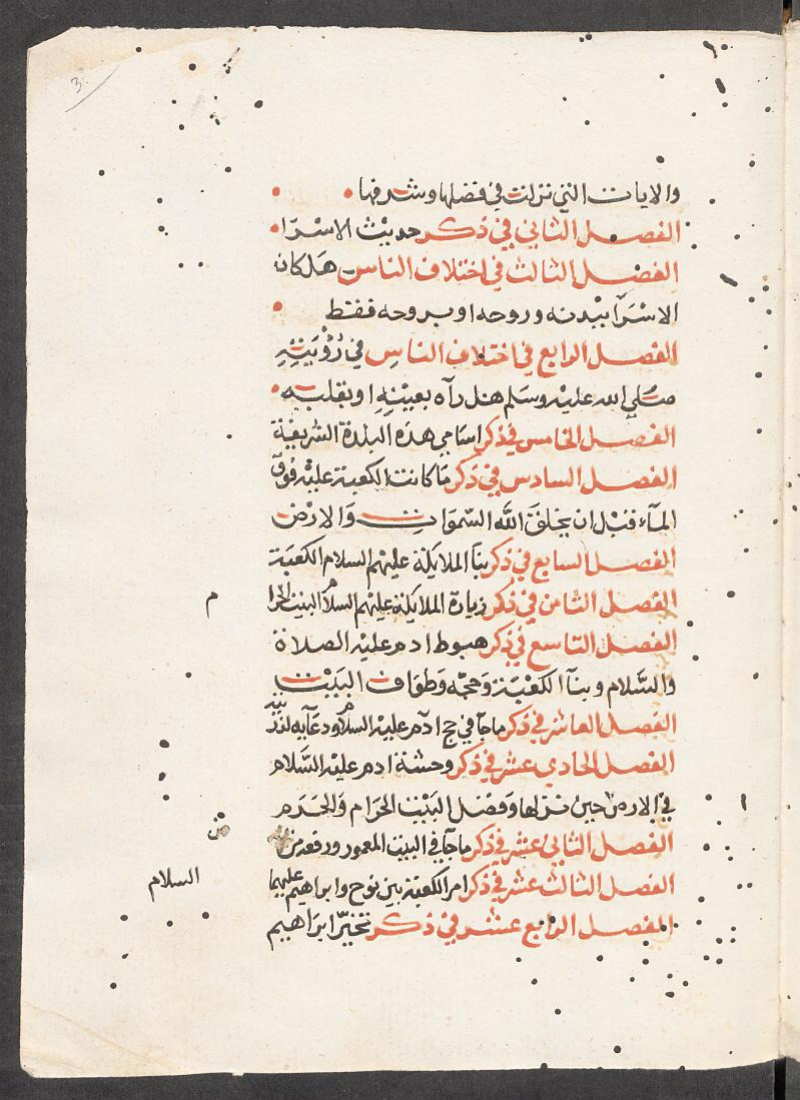 3
والايات التي نزلت في فضلها وشرفها
الفصل الثاني في ذكر حديث الاسرا
الفصل الثالث في اختلاف الناس هل كان
الاسرآ ببدنه وروحه او بروحه فقط
الفصل الرابع في اختلاف الناس في رؤيته
صلي الله عليه وسلم هل رآه بعينه او بقلبه
الفصل الخامس في ذكر اسامي هذه البلدة الشريفة
الفصل السادس في ذكر ما كانت الكعبة عليه فوق
المآء قبل ان يخلق الله السموات والارض
الفصل السابع في ذكر بنآ الملايكة عليهم السلام الكعبة
الفصل الثامن في ذكر زيارة الملايكة عليهم السلام البيت الحرا م
الفصل التاسع في ذكر هبوط ادم عليه الصلاة
والسلام وبنآ الكعبة وحجه وطواف البيت
الفصل العاشر في ذكر ماجآ في حج ادم عليه السلام ودعآيه
الفصل الحادي عشر في ذكر وحشة ادم عليه السلام
في الارض حين نزلها وفضل البيت الحرام والحرم
الفصل الثاني عشر في ذكر ماجآ في البيت المعمور ورفعه من
الفصل الثالث عشر في ذكر امر الكعبة بين نوح وابراهيم عليهما السلام
الفصل الرابع عشر في ذكر تخير ابراهيم